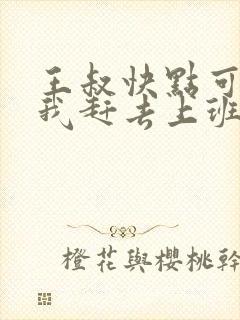 王叔快點可
我赶去上班
橙花與櫻桃幹